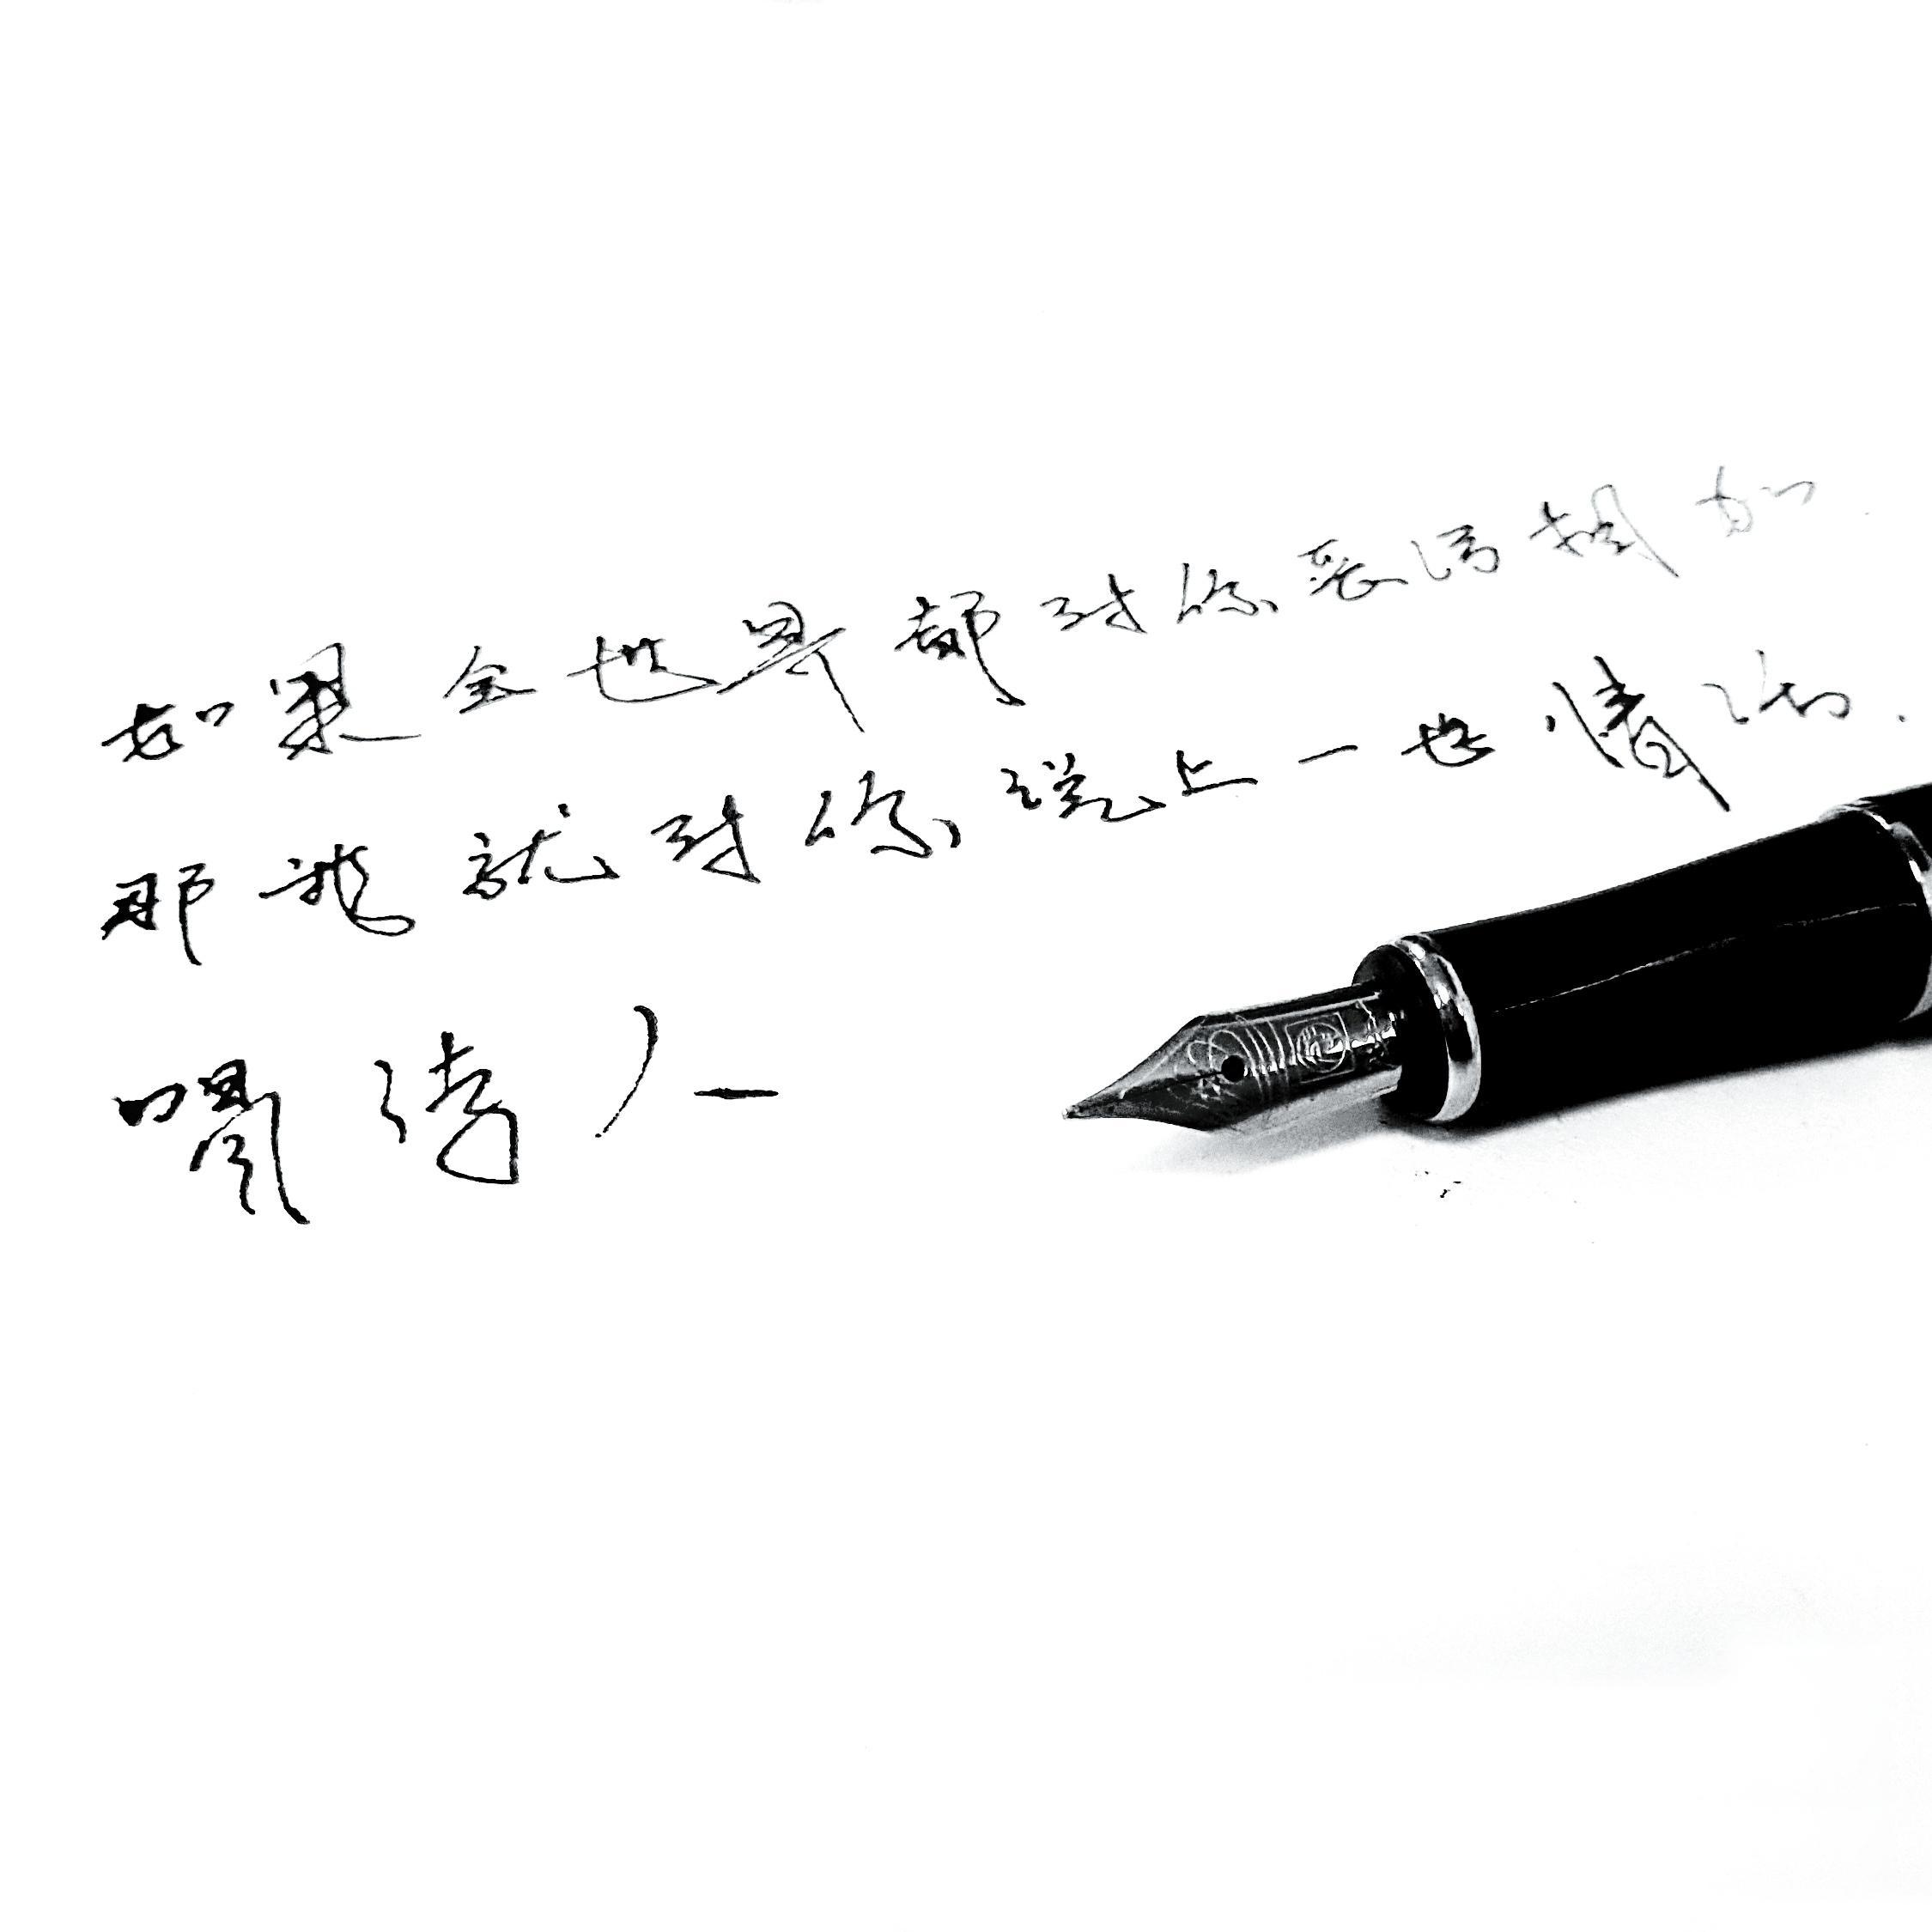 如果全世界都对你恶语相加
那我就对你说上一世情话.